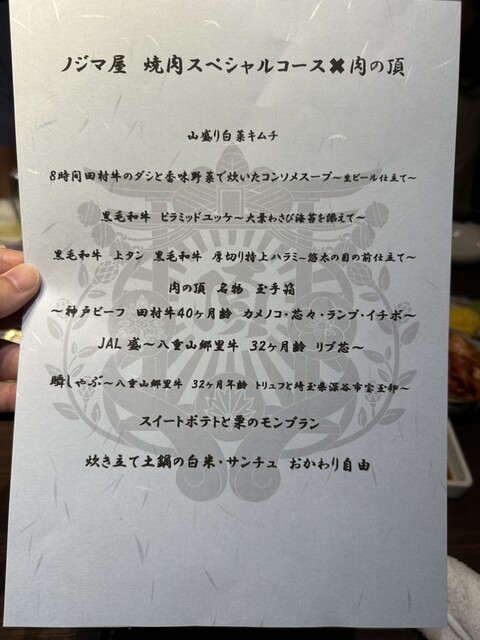 ノジマ屋 焼肉スペシャルコース✖肉の頂
山盛り白菜キムチ
8時間田村牛のダシと香味野菜で炊いたコンソメスープ〜生ビール仕立て〜
黒毛和牛 ピラミッドユッケ〜大葉わさび海苔を添えて〜
黒毛和牛 上タン 黒毛和牛 厚切り特上ハラミ〜悠太の目の前仕立て〜
肉の頂 名物 玉手箱
〜神戸ビーフ 田村牛40ヶ月齢 カメノコ・芯々・ランプ・イチボ〜
JAL盛〜八重山郷里牛 32ヶ月齢 リブ芯〜
瞬しゃぶ〜八重山郷里牛 32ヶ月年齢 トリュフと埼玉県深谷市宝玉卵〜
スイートポテトと栗のモンブラン
炊き立て土鍋の白米・サンチュ おかわり自由
頂